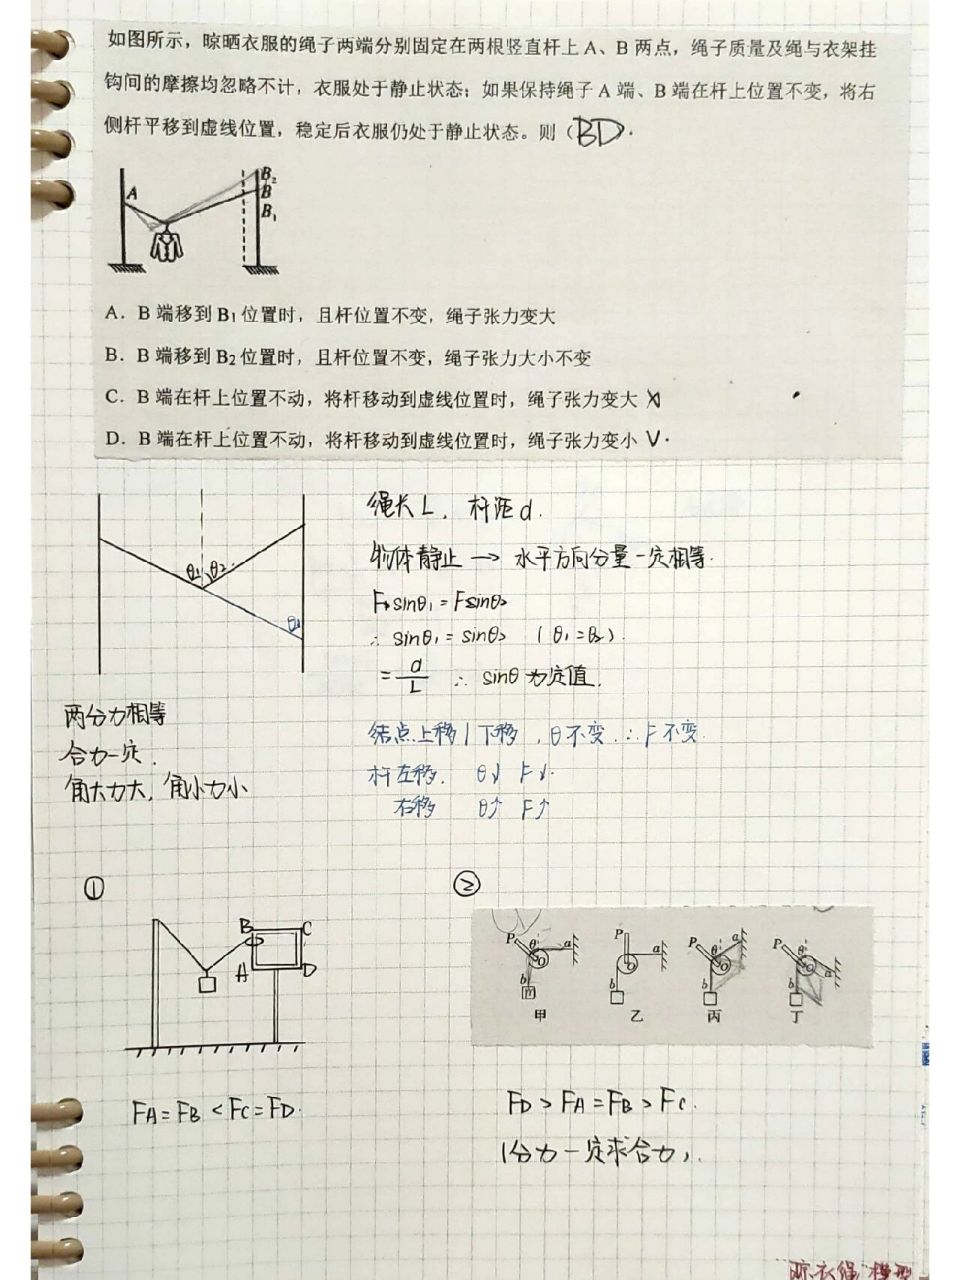 如图所示，晾晒衣服的绳子两端分别固定在两根竖直杆上 A、B 两点，绳子质量及绳与衣架挂
钩间的摩擦均忽略不计，衣服处于静止状态；如果保持绳子 A 端、B 端在杆上位置不变，将右
侧杆平移到虚线位置，稳定后衣服仍处于静止状态。则（BD）.
A
B₂
B
B₁
A．B 端移到 B₁ 位置时，且杆位置不变，绳子张力变大
B．B 端移到 B₂ 位置时，且杆位置不变，绳子张力大小不变
C．B 端在杆上位置不动，将杆移动到虚线位置时，绳子张力变大 X
D．B 端在杆上位置不动，将杆移动到虚线位置时，绳子张力变小 V.
绳长 L，杆距 d.
物体静止 → 水平方向分量一定相等.
θ₁ θ₂
F₁sinθ₁ = Fsinθ₂
∴ sinθ₁ = sinθ₂ (θ₁=θ₂).
= d/L ∴ sinθ 为定值.
两分力相等
合力一定.
角大力大，角小力小
结点上移/下移，θ不变 ∴F不变.
杆左移. θ↓ F↓.
右移 θ↑ F↑
①
②
B C
A D
P θ a
O
b
甲
P a
O
b
乙
P θ a
O
b
丙
P θ
O a
b
丁
FA = FB < FC = FD.
FD > FA = FB > FC.
1分力一定求合力，.
晾衣绳 模型